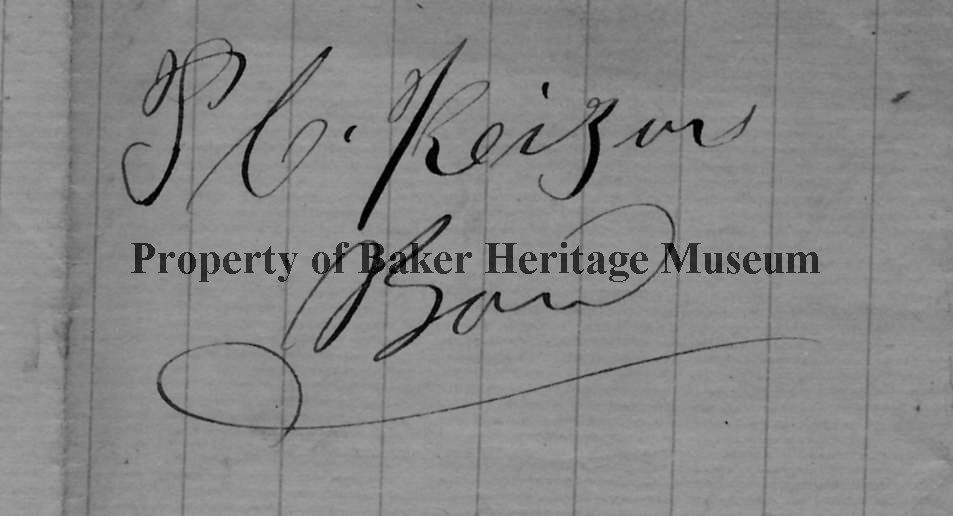 P C. Keizur
Property of Baker Heritage Museum
Bond